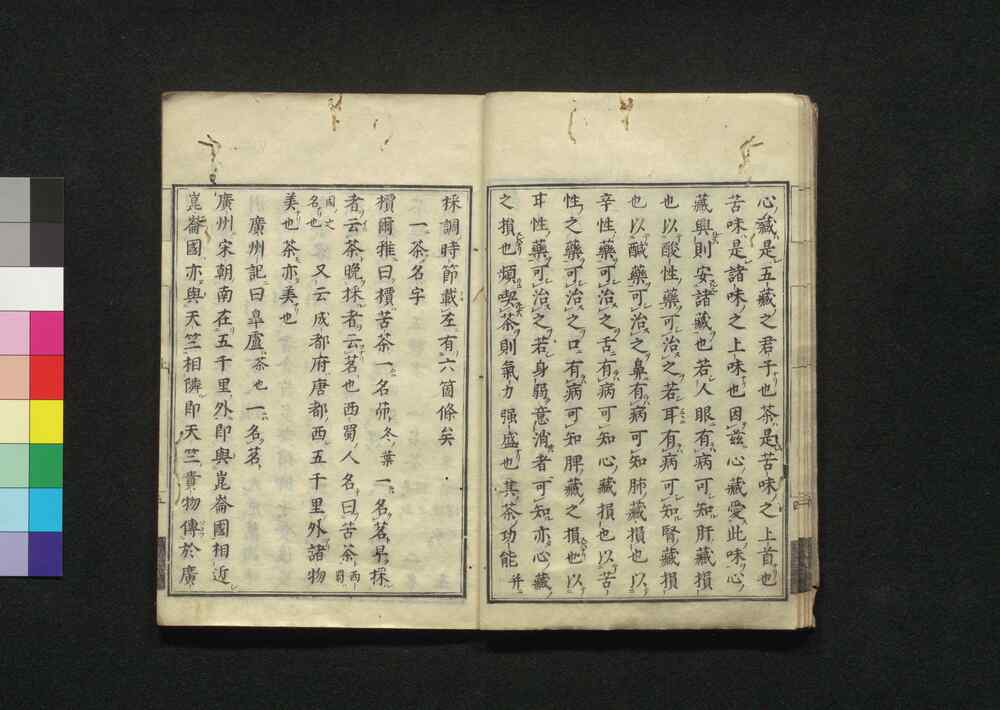 心藏是五藏之君子也茶是苦味之上首也
苦味是諸味之上味也因茲心藏愛此味心
藏興則安諸藏也若人眼有病可知肝藏損
也以酸性藥可治之若耳有病可知腎藏損
也以醎藥可治之鼻有病可知肺藏損也以
辛性藥可治之舌有病可知心藏損也以苦
性之藥可治之口有病可知脾藏之損也以
甘性藥可治之若身弱意消者可知亦心藏
之損也頻喫茶則氣力强盛也其茶功能并
採調時節載左有六箇條矣
一茶名字
檟爾雅曰檟苦茶一名荈冬葉一名茗早採
者云茶晚採者云茗也西蜀人名曰苦茶西蜀
國之名也又云成都府唐都西五千里外諸物
美也茶亦美也
廣州記曰皐盧茶也一名茗
廣州宋朝南在五千里外即與崑崙國相近
崑崙國亦與天竺相隣即天竺貴物傳於廣